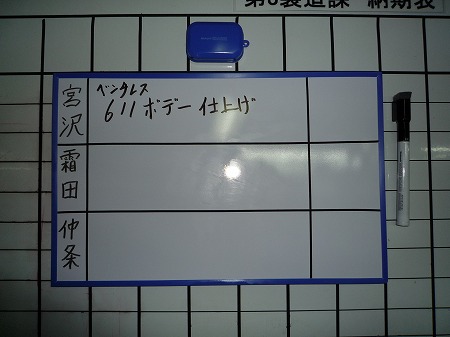 第6製造課 納期表
宮沢
ベンタレス
611 ボデー 仕上げ
霜田
仲条